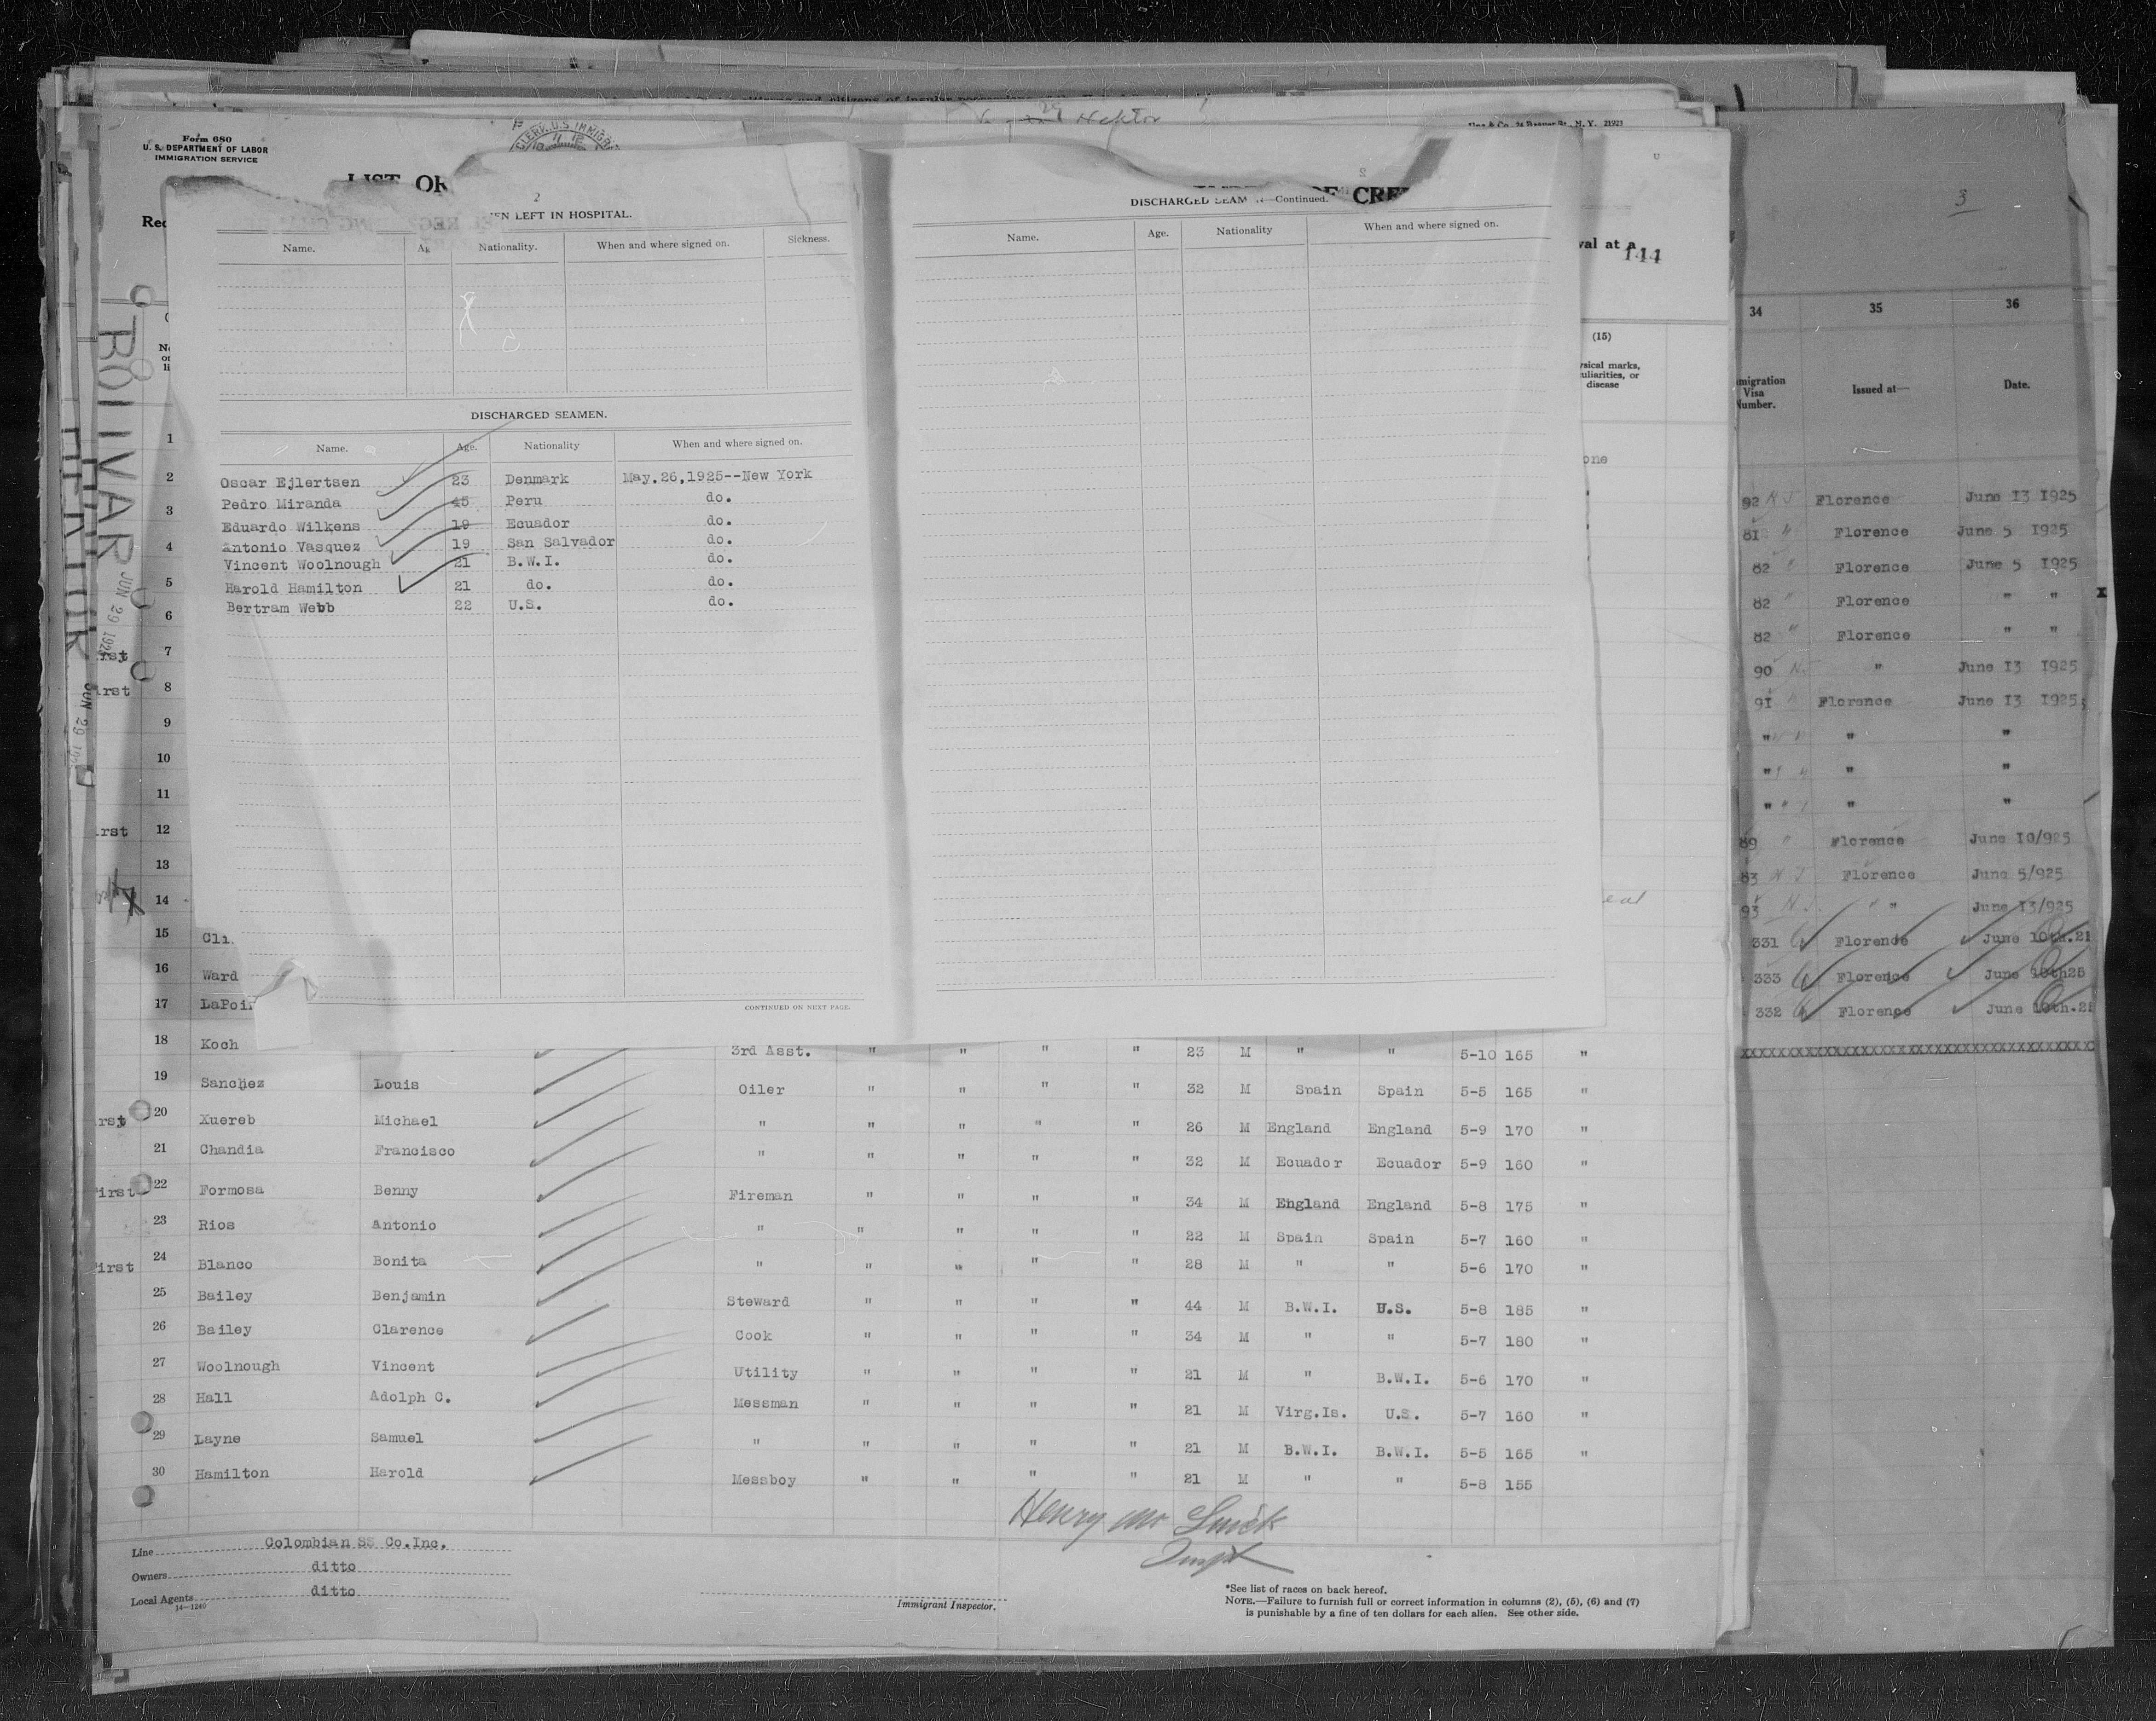 Form 680
U. S. DEPARTMENT OF LABOR
IMMIGRATION SERVICE
CLERK, U.S. IMMIGR
LIST OF
CRE
val at a
144
2
EN LEFT IN HOSPITAL.
Name. Nationality. When and where signed on. Sickness.
DISCHARGED SEAMEN.
Name. Age. Nationality When and where signed on.
Oscar Ejlertsen 23 Denmark May.26,1925--New York
Pedro Miranda 45 Peru do.
Eduardo Wilkens 19 Ecuador do.
Antonio Vasquez 19 San Salvador do.
Vincent Woolnough 21 B.W.I. do.
Harold Hamilton 21 do. do.
Bertram Webb 22 U.S. do.
CONTINUED ON NEXT PAGE.
DISCHARGED SEAM —Continued.
Name. Age. Nationality When and where signed on.
(15)
ysical marks,
uliarities, or
disease
BOLIVAR
JUN 29 192
1
2
3
4
5
6
7
8
9
10
11
12
13
14
15 Cli
16 Ward
17 LaPoi
18 Koch 3rd Asst. " " " " 23 M " " 5-10 165 "
19 Sanchez Louis Oiler " " " " 32 M Spain Spain 5-5 165 "
20 Xuereb Michael " " " " " 26 M England England 5-9 170 "
21 Chandia Francisco " " " " " 32 M Ecuador Ecuador 5-9 160 "
22 Formosa Benny Fireman " " " " 34 M England England 5-8 175 "
23 Rios Antonio " " " " " 22 M Spain Spain 5-7 160 "
24 Blanco Bonita " " " " " 28 M " " 5-6 170 "
25 Bailey Benjamin Steward " " " " 44 M B.W.I. U.S. 5-8 185 "
26 Bailey Clarence Cook " " " " 34 M " " 5-7 180 "
27 Woolnough Vincent Utility " " " " 21 M " B.W.I. 5-6 170 "
28 Hall Adolph C. Messman " " " " 21 M Virg.Is. U.S. 5-7 160 "
29 Layne Samuel " " " " " 21 M B.W.I. B.W.I. 5-5 165 "
30 Hamilton Harold Messboy " " " " 21 M " " 5-8 155
Line Colombian SS Co.Inc.
Owners ditto
Local Agents ditto
14—1240
Immigrant Inspector.
*See list of races on back hereof.
NOTE.—Failure to furnish full or correct information in columns (2), (5), (6) and (7)
is punishable by a fine of ten dollars for each alien. See other side.
3
34 35 36
migration
Visa
Number. Issued at— Date.
92 Florence June 13 1925
81 " Florence June 5 1925
82 " Florence June 5 1925
82 " Florence " "
82 " Florence " "
90 " June 13 1925
91 Florence June 13 1925
" " "
" " "
" " "
89 " Florence June 10/925
83 Florence June 5/925
93 " " June 13/925
331 Florence June 10th.2
333 Florence June 10th25
332 Florence June 10th.2